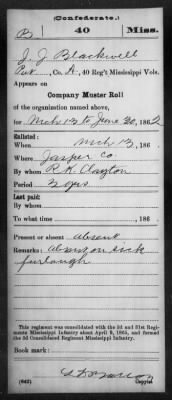 (Confederate.)
B 40 Miss.
J. J. Blackwell
Pvt, Co. A, 40 Reg't Mississippi Vols.
Appears on
Company Muster Roll
of the organization named above,
for Mch 13 to June 30, 1862
Enlisted:
When Mch 13, 186
Where Jasper Co.
By whom R. K. Clayton
Period 3 yrs
Last paid:
By whom
To what time , 186
Present or absent absent
Remarks: Absent on sick
furlough
This regiment was consolidated with the 3d and 31st Regiments Mississippi Infantry about April 9, 1865, and formed the 3d Consolidated Regiment Mississippi Infantry.
Book mark:
(642) Copyist.